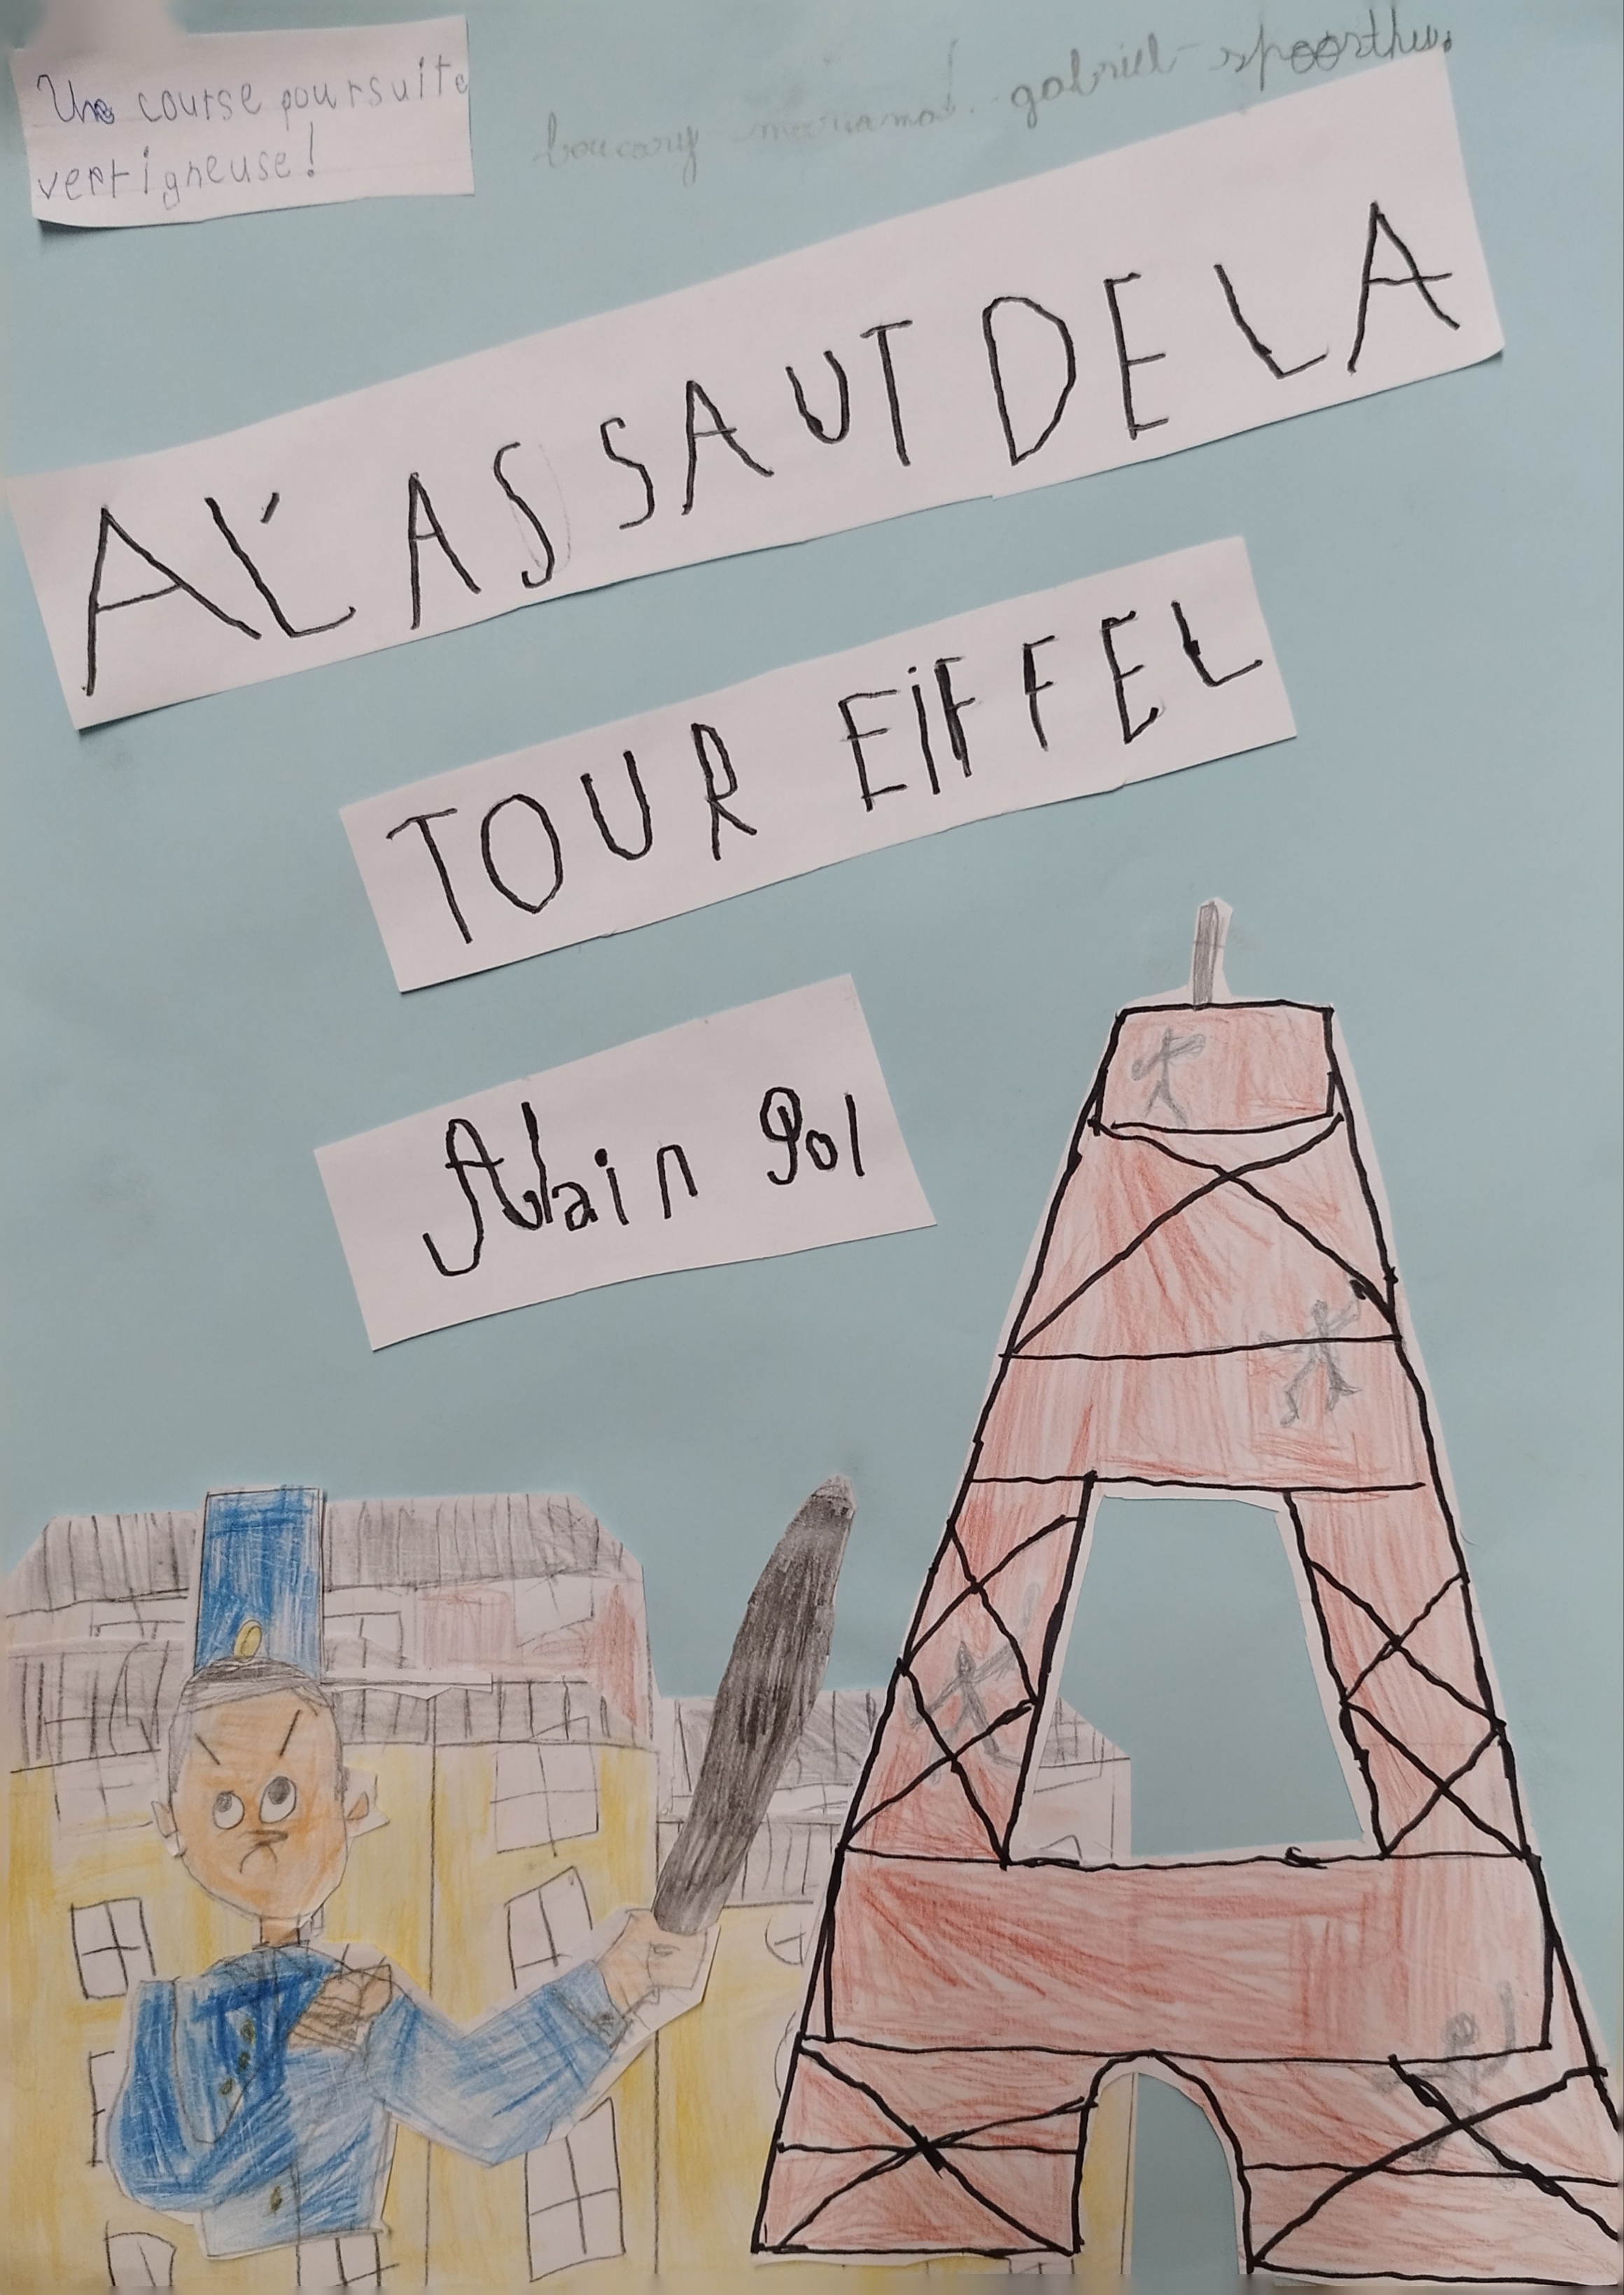 Une course poursuite
vertigneuse!
boucary - mariamat - gabriel - spoorthy.
A L'ASSAUT DE LA
TOUR EIFFEL
Alain Pol